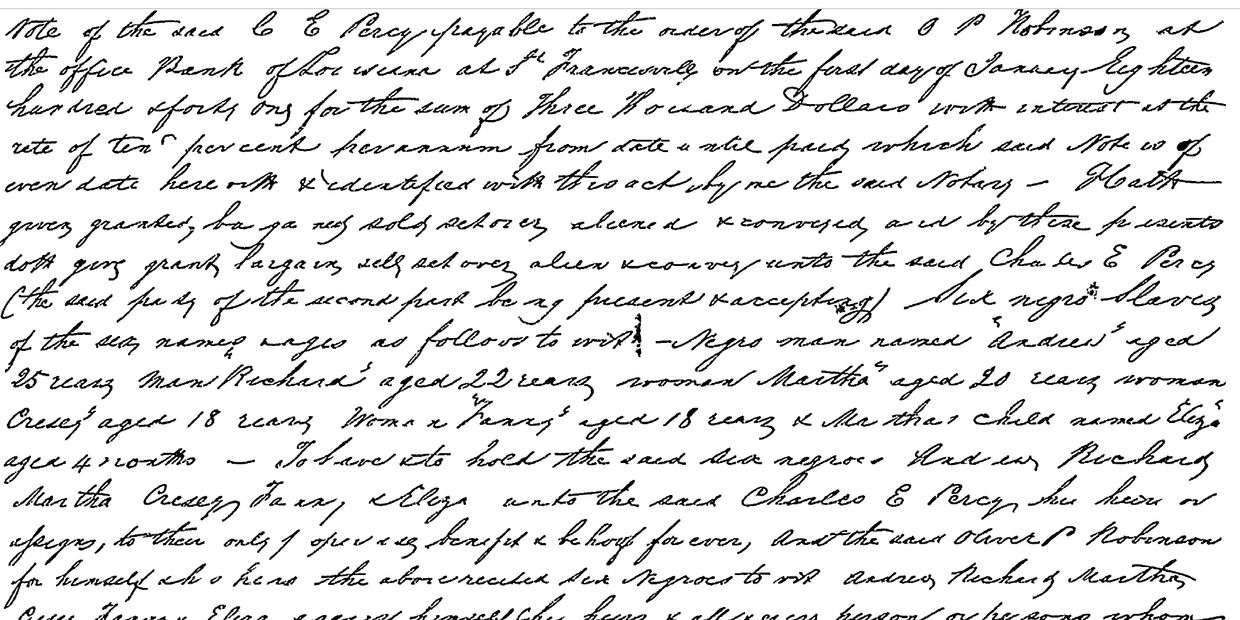 Note of the said C E Percy payable to the order of the said O P Robinson at
the office Bank of Louisiana at St Francisville on the first day of January Eighteen
hundred & forty one for the sum of Three Thousand Dollars with interest at the
rate of ten per cent per annum from date until paid which said Note is of
even date herewith & identified with this act by me the said Notary — Hath
given granted, bargained sold set over aliened & conveyed and by these presents
doth give grant, bargain, sell set over, alien & convey unto the said Charles E Percy
(the said party of the second part being present & accepting) Six negro Slaves
of the sex, names & ages as follows to wit — Negro man named "Andrew" aged
25 years Man "Richard" aged 22 years woman Martha" aged 20 years woman
Cresey" aged 18 years Woman "Fanny" aged 18 years & Marthas child named "Eliza"
aged 4 months — To have & to hold the said Six negroes Andrew Richard
Martha Cresey Fanny & Eliza unto the said Charles E Percy, his heirs or
assigns, to their only proper use benefit & behoof for ever, And the said Oliver P Robinson
for himself & his heirs the above recited Six Negroes to wit Andrew Richard Martha
Cresey Fanny & Eliza against himself his heirs & all & every person or persons whom